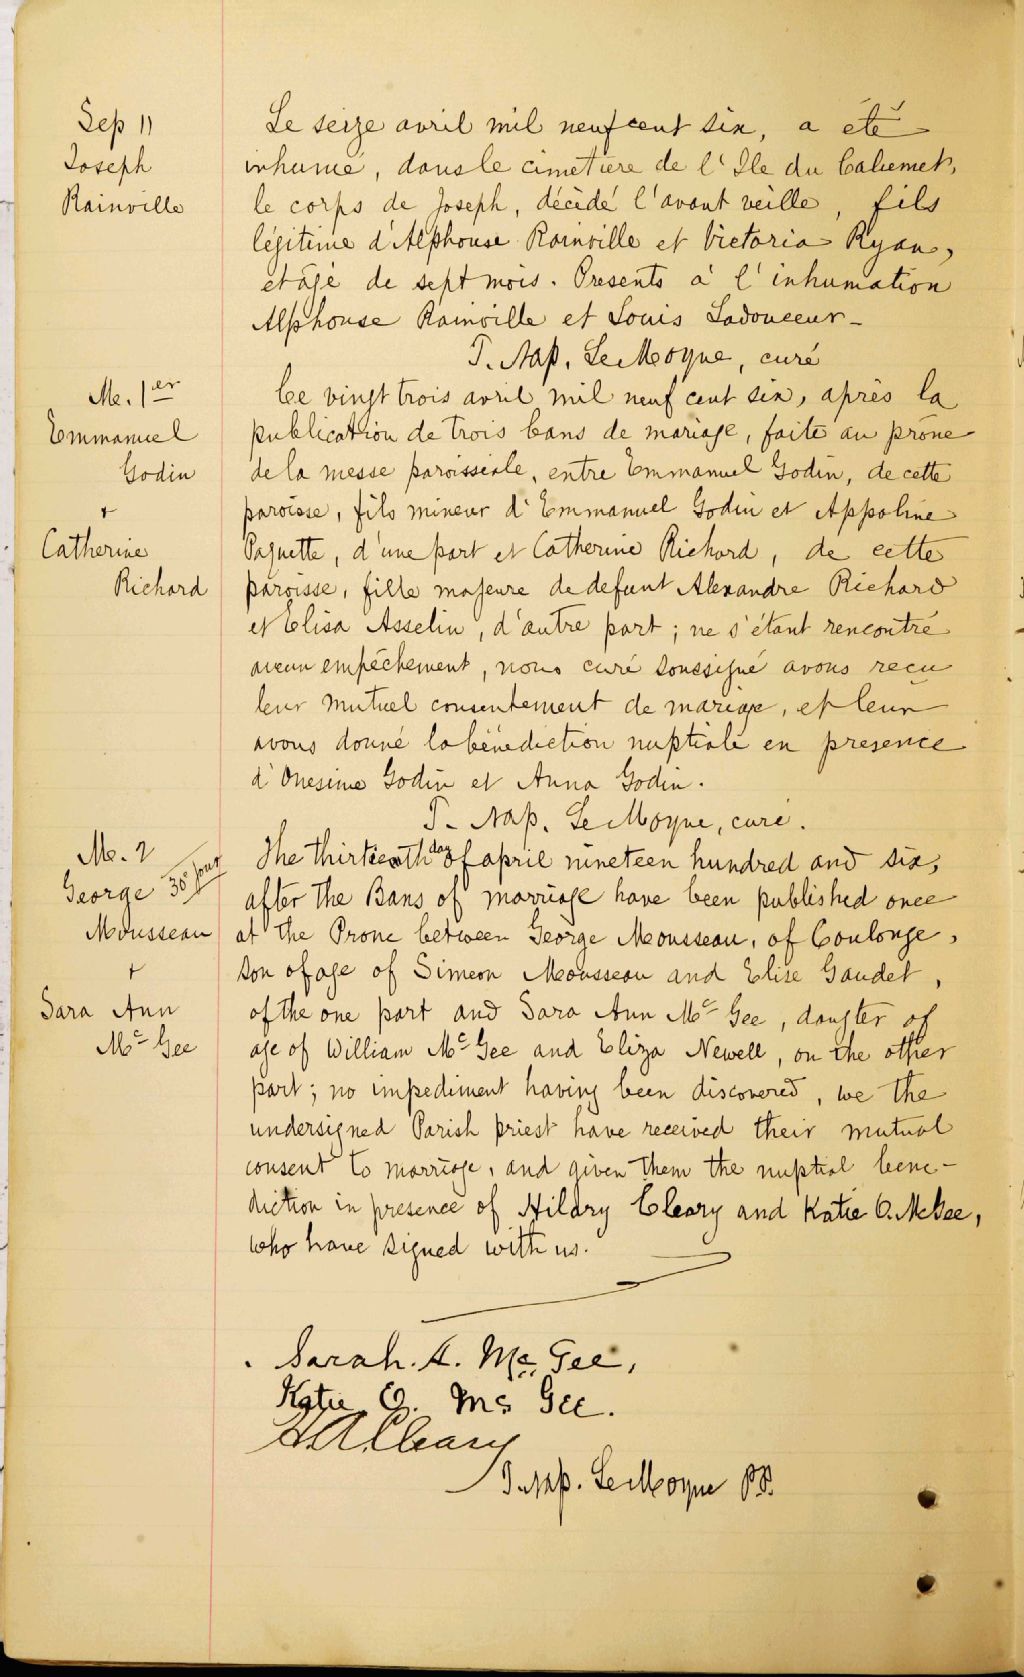 Sep 11
Joseph
Rainville
Le seize avril mil neuf cent six, a été
inhumé, dans le cimetière de l'Ile du Calumet,
le corps de Joseph, décédé l'avant veille, fils
légitime d'Alphonse Rainville et Victoria Ryan,
et âgé de sept mois. Presents à l'inhumation
Alphonse Rainville et Louis Ladouceur -
T. Nap. Le Moyne, curé
M. 1er
Emmanuel
Godin
+
Catherine
Richard
Ce vingt trois avril mil neuf cent six, après la
publication de trois bans de mariage, faite au prône
de la messe paroissiale, entre Emmanuel Godin, de cette
paroisse, fils mineur d'Emmanuel Godin et Appoline
Paquette, d'une part et Catherine Richard, de cette
paroisse, fille majeure de defunt Alexandre Richard
et Elisa Asselin, d'autre part; ne s'étant rencontré
aucun empêchement, nous curé soussigné avons reçu
leur mutuel consentement de mariage, et leur
avons donné la bénédiction nuptiale en presence
d'Onesime Godin et Anna Godin.
T. Nap. Le Moyne, curé.
M. 2
George 30e jour
Mousseau
+
Sara Ann
Mc Gee
The thirtieth day of april nineteen hundred and six,
after the Bans of marriage have been published once
at the Prone between George Mousseau, of Coulonge,
son of age of Simeon Mousseau and Elise Gaudet,
of the one part and Sara Ann Mc Gee, daugter of
age of William Mc Gee and Eliza Newell, on the other
part; no impediment having been discovered, we the
undersigned Parish priest have received their mutual
consent to marriage, and given them the nuptial bene-
diction in presence of Hilary Cleary and Katie O. McGee,
who have signed with us.
Sarah. A. Mc Gee,
Katie O. Mc Gee.
H. A. Cleary
T. Nap. Le Moyne P.P.